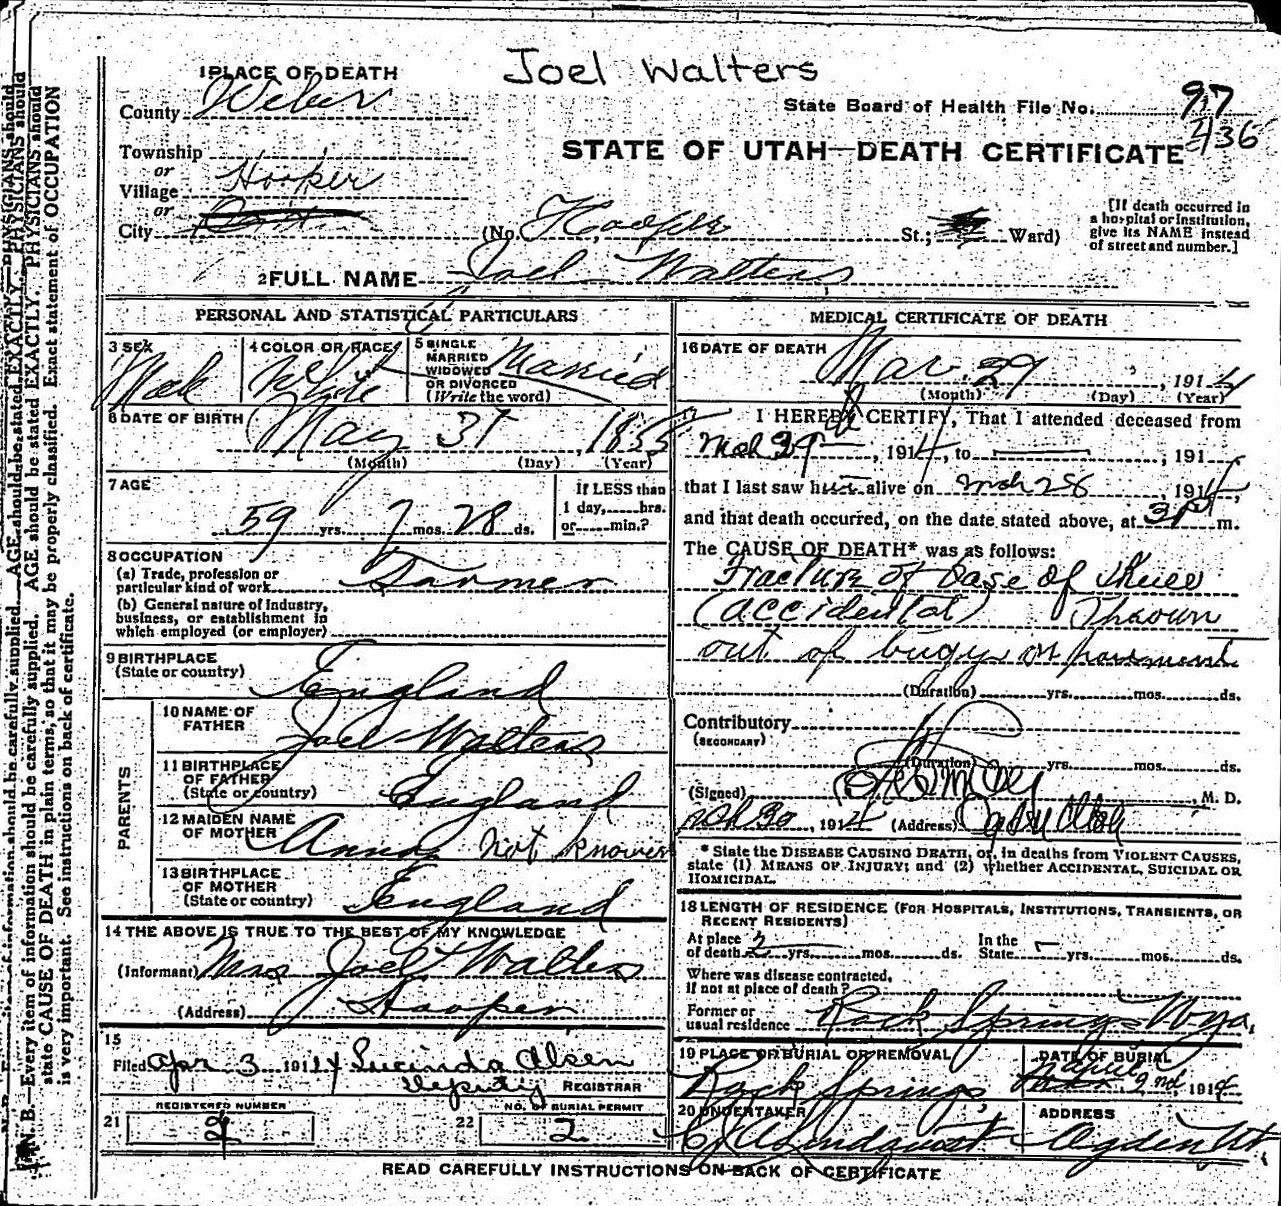 Joel Walters
1 PLACE OF DEATH
County Weber
State Board of Health File No. 97
436
Township
or
Village Hooper
or
City
STATE OF UTAH—DEATH CERTIFICATE
(No. Hooper St.; Ward)
[If death occurred in
a hospital or institution,
give its NAME instead
of street and number.]
2 FULL NAME Joel Walters
PERSONAL AND STATISTICAL PARTICULARS
3 SEX Male
4 COLOR OR RACE White
5 SINGLE
MARRIED
WIDOWED
OR DIVORCED
(Write the word)
Married
6 DATE OF BIRTH May 31, 1855
(Month) (Day) (Year)
7 AGE
59 yrs. 7 mos. 28 ds.
If LESS than
1 day,......hrs.
or......min.?
8 OCCUPATION
(a) Trade, profession or
particular kind of work Farmer
(b) General nature of industry,
business, or establishment in
which employed (or employer)
9 BIRTHPLACE
(State or country) England
PARENTS
10 NAME OF
FATHER Joel Walters
11 BIRTHPLACE
OF FATHER
(State or country) England
12 MAIDEN NAME
OF MOTHER Anna not known
13 BIRTHPLACE
OF MOTHER
(State or country) England
14 THE ABOVE IS TRUE TO THE BEST OF MY KNOWLEDGE
(Informant) Mrs Joel Walters
(Address) Hooper
15
Filed Apr 3 1914 Lucinda Olsen
Deputy REGISTRAR
21 REGISTERED NUMBER
22 NO. OF BURIAL PERMIT
2
MEDICAL CERTIFICATE OF DEATH
16 DATE OF DEATH
Mar. 29, 1914
(Month) (Day) (Year)
I HEREBY CERTIFY, That I attended deceased from
Mch 29, 1914, to , 191
that I last saw him alive on Mch 28, 1914,
and that death occurred, on the date stated above, at 3 P m.
The CAUSE OF DEATH* was as follows:
Fracture of base of skull
(accidental) Thrown
out of bugy on pavement
(Duration) yrs. mos. ds.
Contributory
(SECONDARY)
(Duration) yrs. mos. ds.
(Signed) , M. D.
Mch 30, 1914 (Address) Ogden Utah
* State the DISEASE CAUSING DEATH, or, in deaths from VIOLENT CAUSES,
state (1) MEANS OF INJURY; and (2) whether ACCIDENTAL, SUICIDAL OR
HOMICIDAL.
18 LENGTH OF RESIDENCE (FOR HOSPITALS, INSTITUTIONS, TRANSIENTS, OR
RECENT RESIDENTS)
At place
of death 2 yrs. mos. ds.
In the
State yrs. mos. ds.
Where was disease contracted,
if not at place of death?
Former or
usual residence Rock Springs Wyo.
19 PLACE OF BURIAL OR REMOVAL
Rock Springs
DATE OF BURIAL
April 2nd, 1914
20 UNDERTAKER
ADDRESS
Ogden Ut.
READ CAREFULLY INSTRUCTIONS ON BACK OF CERTIFICATE
N. B.—Every item of information should be carefully supplied. AGE should be stated EXACTLY. PHYSICIANS should
state CAUSE OF DEATH in plain terms, so that it may be properly classified. Exact statement of OCCUPATION
is very important. See instructions on back of certificate.